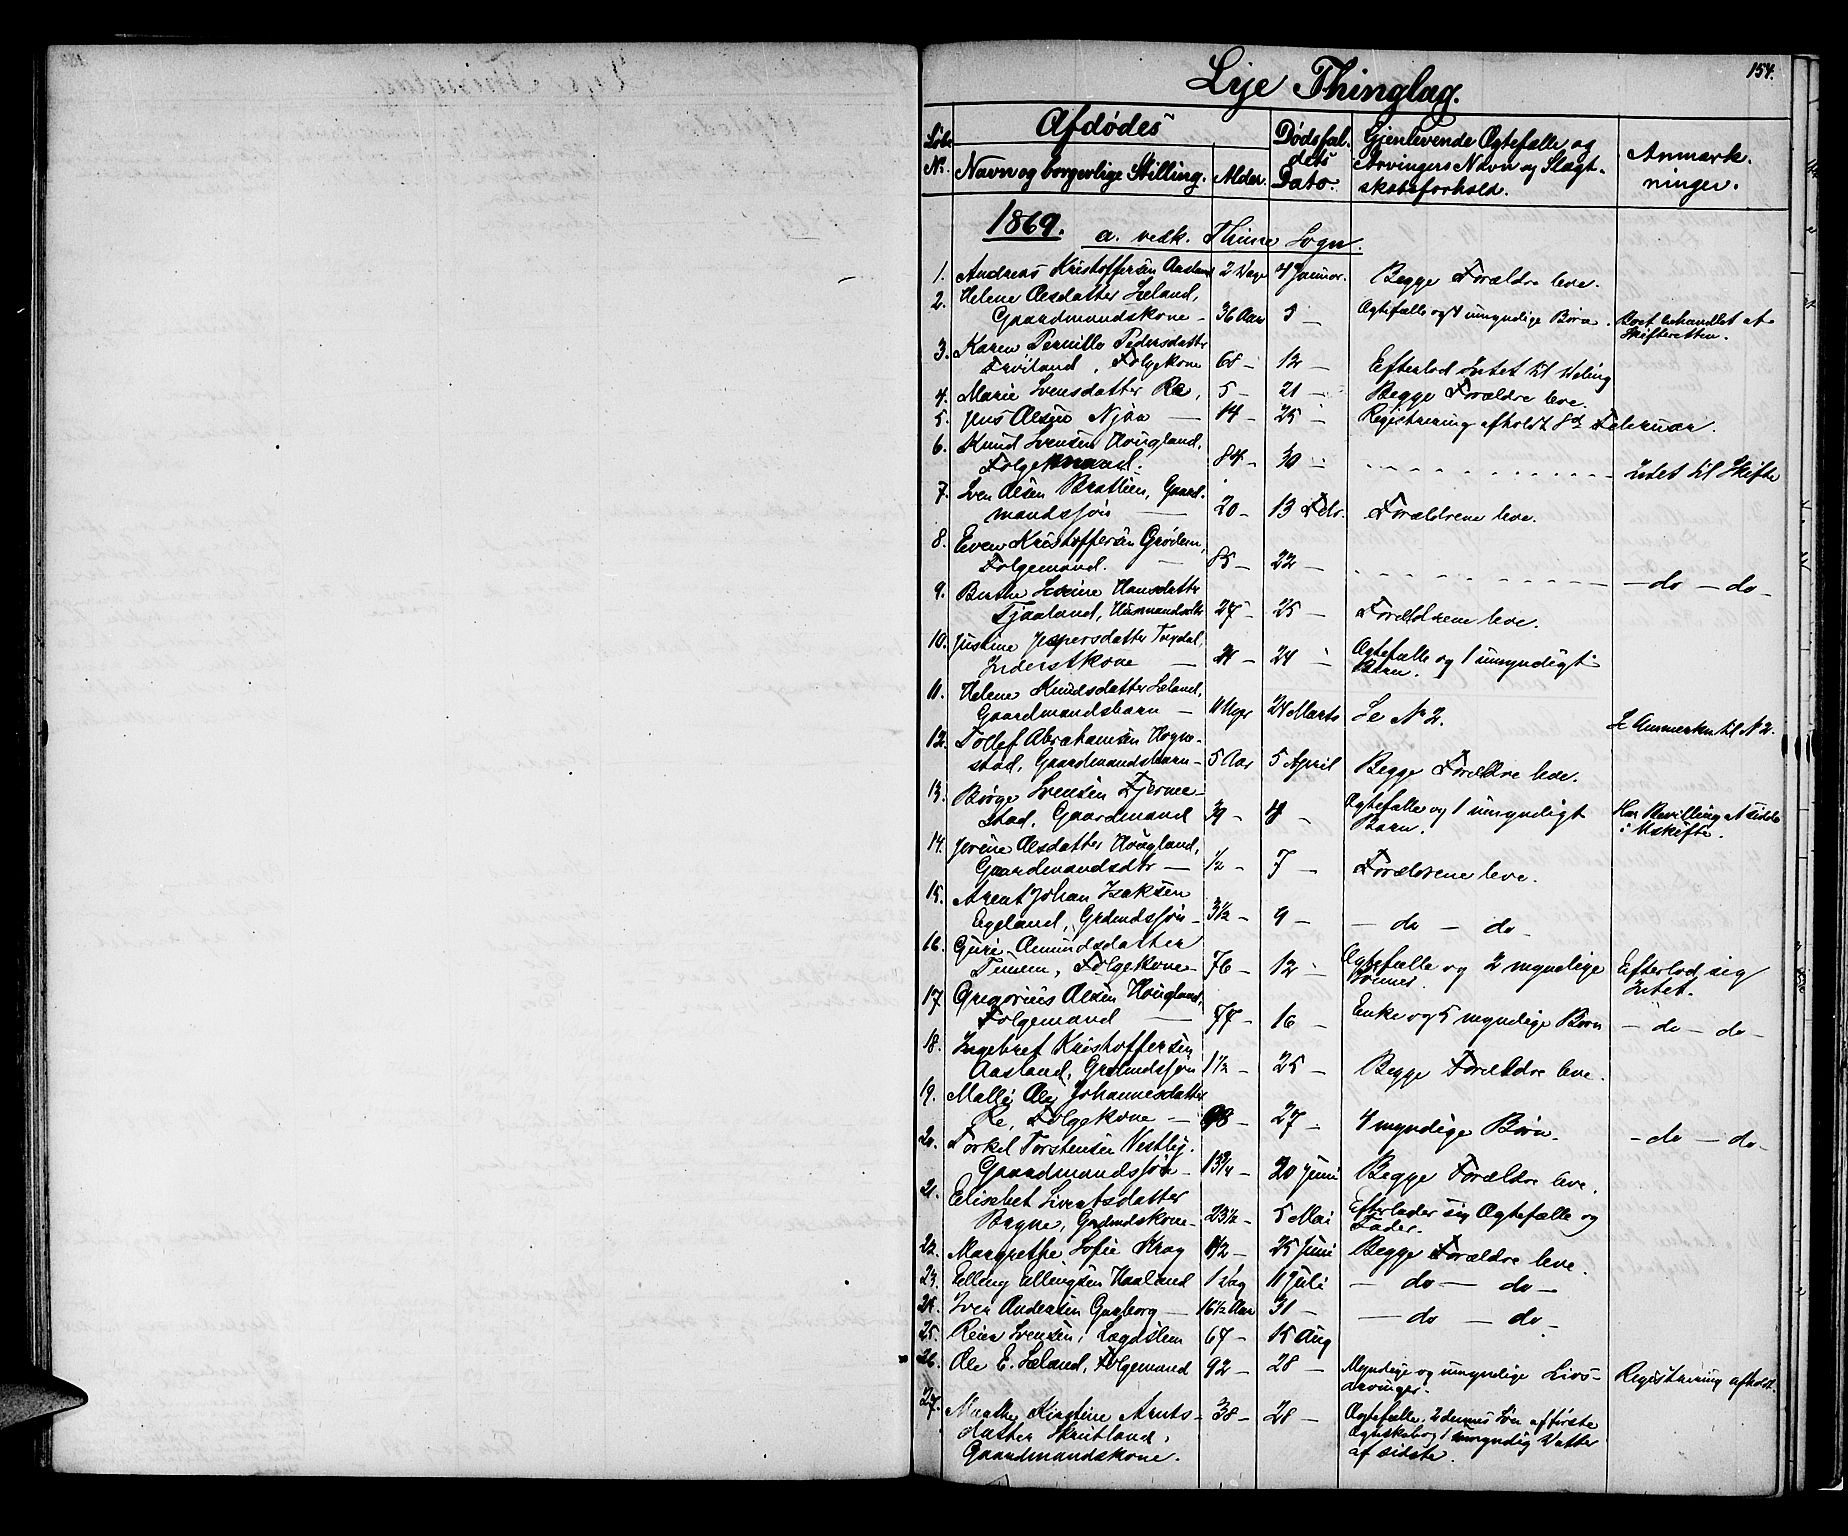 154.
Lye Thinglag.
Løbe Nr. Afdødes Dødsfaldets Dato. Gjenlevende Ægtefælle og Arvingers Navn og Slægtskabsforhold. Anmærkninger.
Navn og borgerlige Stilling. Alder.
1869. a. vedk. Thime Sogn.
1. Andreas Kristoffersen Aasland 2 Uger 4 Januar. Begge Forældre leve.
2. Helene Olesdatter Læland,
Gaardmandskone 36 Aar 5 — Ægtefælle og 4 umyndige Børn. Boet behandlet af Skifteretten.
3. Karen Pernille Pedersdatter
Frøiland, Folgekone 68 — 12 — Efterlod Intet til Deling
4. Marie Svensdatter Re, 5 — 21 — Begge Forældre leve.
5. Jens Olsen Njaa — 14 — 25 — Registrering afholdt 8de Februar.
6. Knud Svensen Hougland,
Folgemand. 84 — 30 — Intet til Skifte
7. Sven Olsen Bratlien, Gaard-
mandssøn — 20 — 13 Febr. Forældrene leve.
8. Even Kristoffersen Grødem,
Folgemand. — 85 — 22 — — do — do —
9. Berthe Hansdatter
Tjaaland, Husmandsdtr 27 — 25 — Forældrene leve.
10. Justine Jespersdatter
Inderstkone — 24 — Ægtefælle og 1 umyndigt Barn.
11. Helene Knudsdatter Læland,
Gaardmandsbarn — 11 Uger 24 Marts Se No 2. Se Anmærkn til No 2.
12. Tollef Abrahamsen Hogne-
stad, Gaardmandsbarn — 5 Aar 5 April Begge Forældre leve.
13. Børge Svensen Fjerme-
stad, Gaardmand 39 — Ægtefælle og 1 umyndigt Barn. Har Bevilling at sidde i Uskifte.
14. Serine Olesdatter Hougland,
Gaardmandsdtr — 1/2 — 7 — Forældrene leve.
15. Arent Johan Isaksen
Egeland, Grdmdssøn — 3 1/2 — 9 — — do — do —
16. Guri Omundsdatter
Timem, Folgekone 76 — 12 — Ægtefælle og 2 myndige Sønner Efterlod sig Intet.
17. Gregorius Olsen Hougland,
Folgemand — 77 — 16 — Enke og 5 myndige Børn — do — do —
18. Ingebret Kristoffersen
Aasland, Grdmdssøn 1 1/2 — 25 — Begge Forældre leve.
19. Malli Johannesdatter
Re, Folgekone — 27 — 4 myndige Børn. — do — do —
20. Torkel Torstensen Vestly,
Gaardmandssøn — 13 3/4 — 20 Juni Begge Forældre leve.
21. Elisabet Sivertsdatter
Grdmdskone — 23 1/2 — 5 Mai Efterlader sig Ægtefælle og Fader.
22. Margrethe Sofie Krag 25 Juni Begge Forældre leve.
23. Elling Ellingsen Haaland 1 Dag 11 Juli — do — do —
24. Iver Andersen Garborg — 16 1/2 Aar 31 — — do — do —
25. Reier Svensen, Lægdslem 67 — 15 Aug
26. Ole E. Læland, Folgemand 92 — 28 — Myndige og umyndige Livs-
arvinger. Registrering afholdt.
27. Marthe Kirstine Arnts-
datter Skretland,
Gaardmandskone. 38 — 28 — Ægtefælle, 2 dennes Søn af første
Ægteskab og 1 umyndig Datter
af sidste.